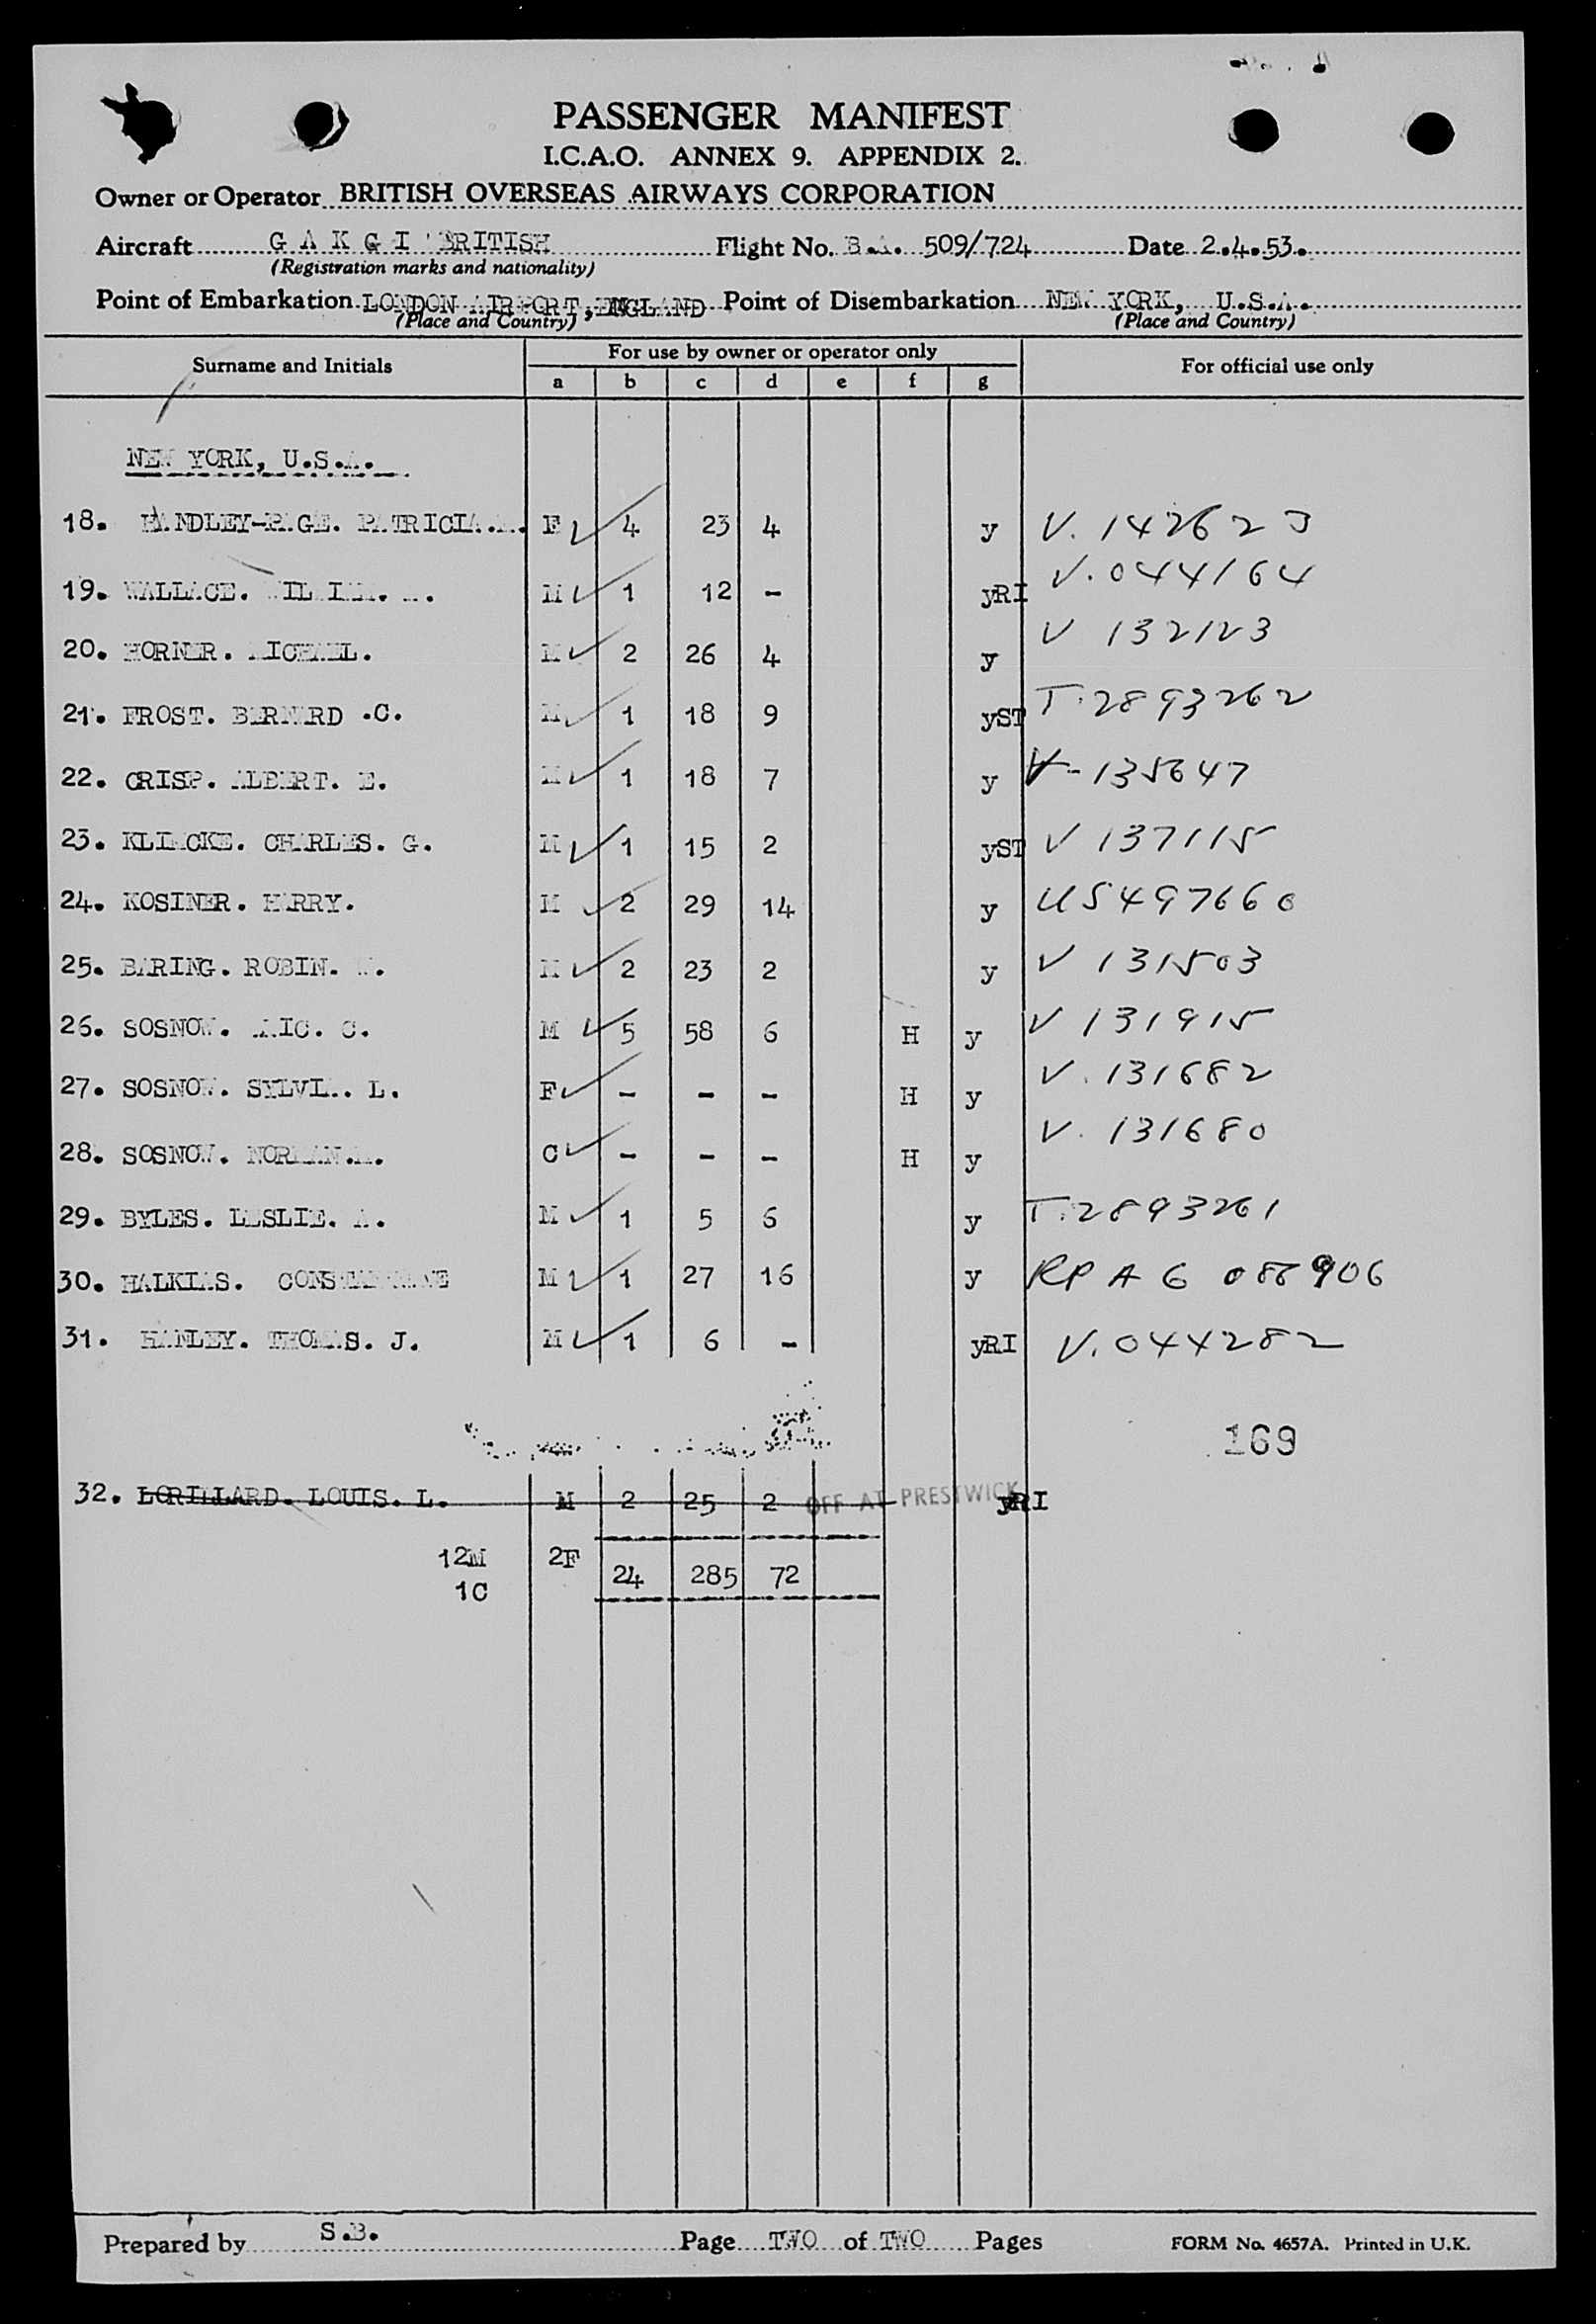 PASSENGER MANIFEST
I.C.A.O. ANNEX 9. APPENDIX 2.
Owner or Operator BRITISH OVERSEAS AIRWAYS CORPORATION
Aircraft G A K G I BRITISH Flight No. B.A. 509/724 Date 2.4.53.
(Registration marks and nationality)
Point of Embarkation LONDON AIRPORT, ENGLAND Point of Disembarkation NEW YORK, U.S.A.
(Place and Country) (Place and Country)
Surname and Initials For use by owner or operator only For official use only
a b c d e f g
NEW YORK, U.S.A.
18. HANDLEY-PAGE. PATRICIA.A. F 4 23 4 y V. 142623
19. WALLACE. WILLIAM. yRI M 1 12 - V. 044164
20. HORNER. MICHAEL. M 2 26 4 y V 132123
21. FROST. BERNARD .C. M 1 18 9 yST T.2893262
22. CRISP. ALBERT. E. M 1 18 7 y V-135647
23. KLIECKE. CHARLES. G. M 1 15 2 yST V 137115
24. KOSINER. HARRY. M 2 29 14 y US497660
25. BARING. ROBIN. W. M 2 23 2 y V 131503
26. SOSNOW. C. M 5 58 6 H y V 131915
27. SOSNOW. SYLVIA. L. F - - - H y V. 131682
28. SOSNOW. NORMAN. C - - - H y V. 131680
29. BYLES. LESLIE. A. M 1 5 6 y T.2893261
30. HALKIAS. CONSTANTINE M 1 27 16 y RP A 6 088906
31. HANLEY. THOMAS. J. M 1 6 - yRI V. 044282
169
32. LORILLARD. LOUIS. L. M 2 25 2 OFF AT PRESTWICK yRI
12M 2F
24 285 72
1C
Prepared by S.B. Page TWO of TWO Pages FORM No. 4657A. Printed in U.K.